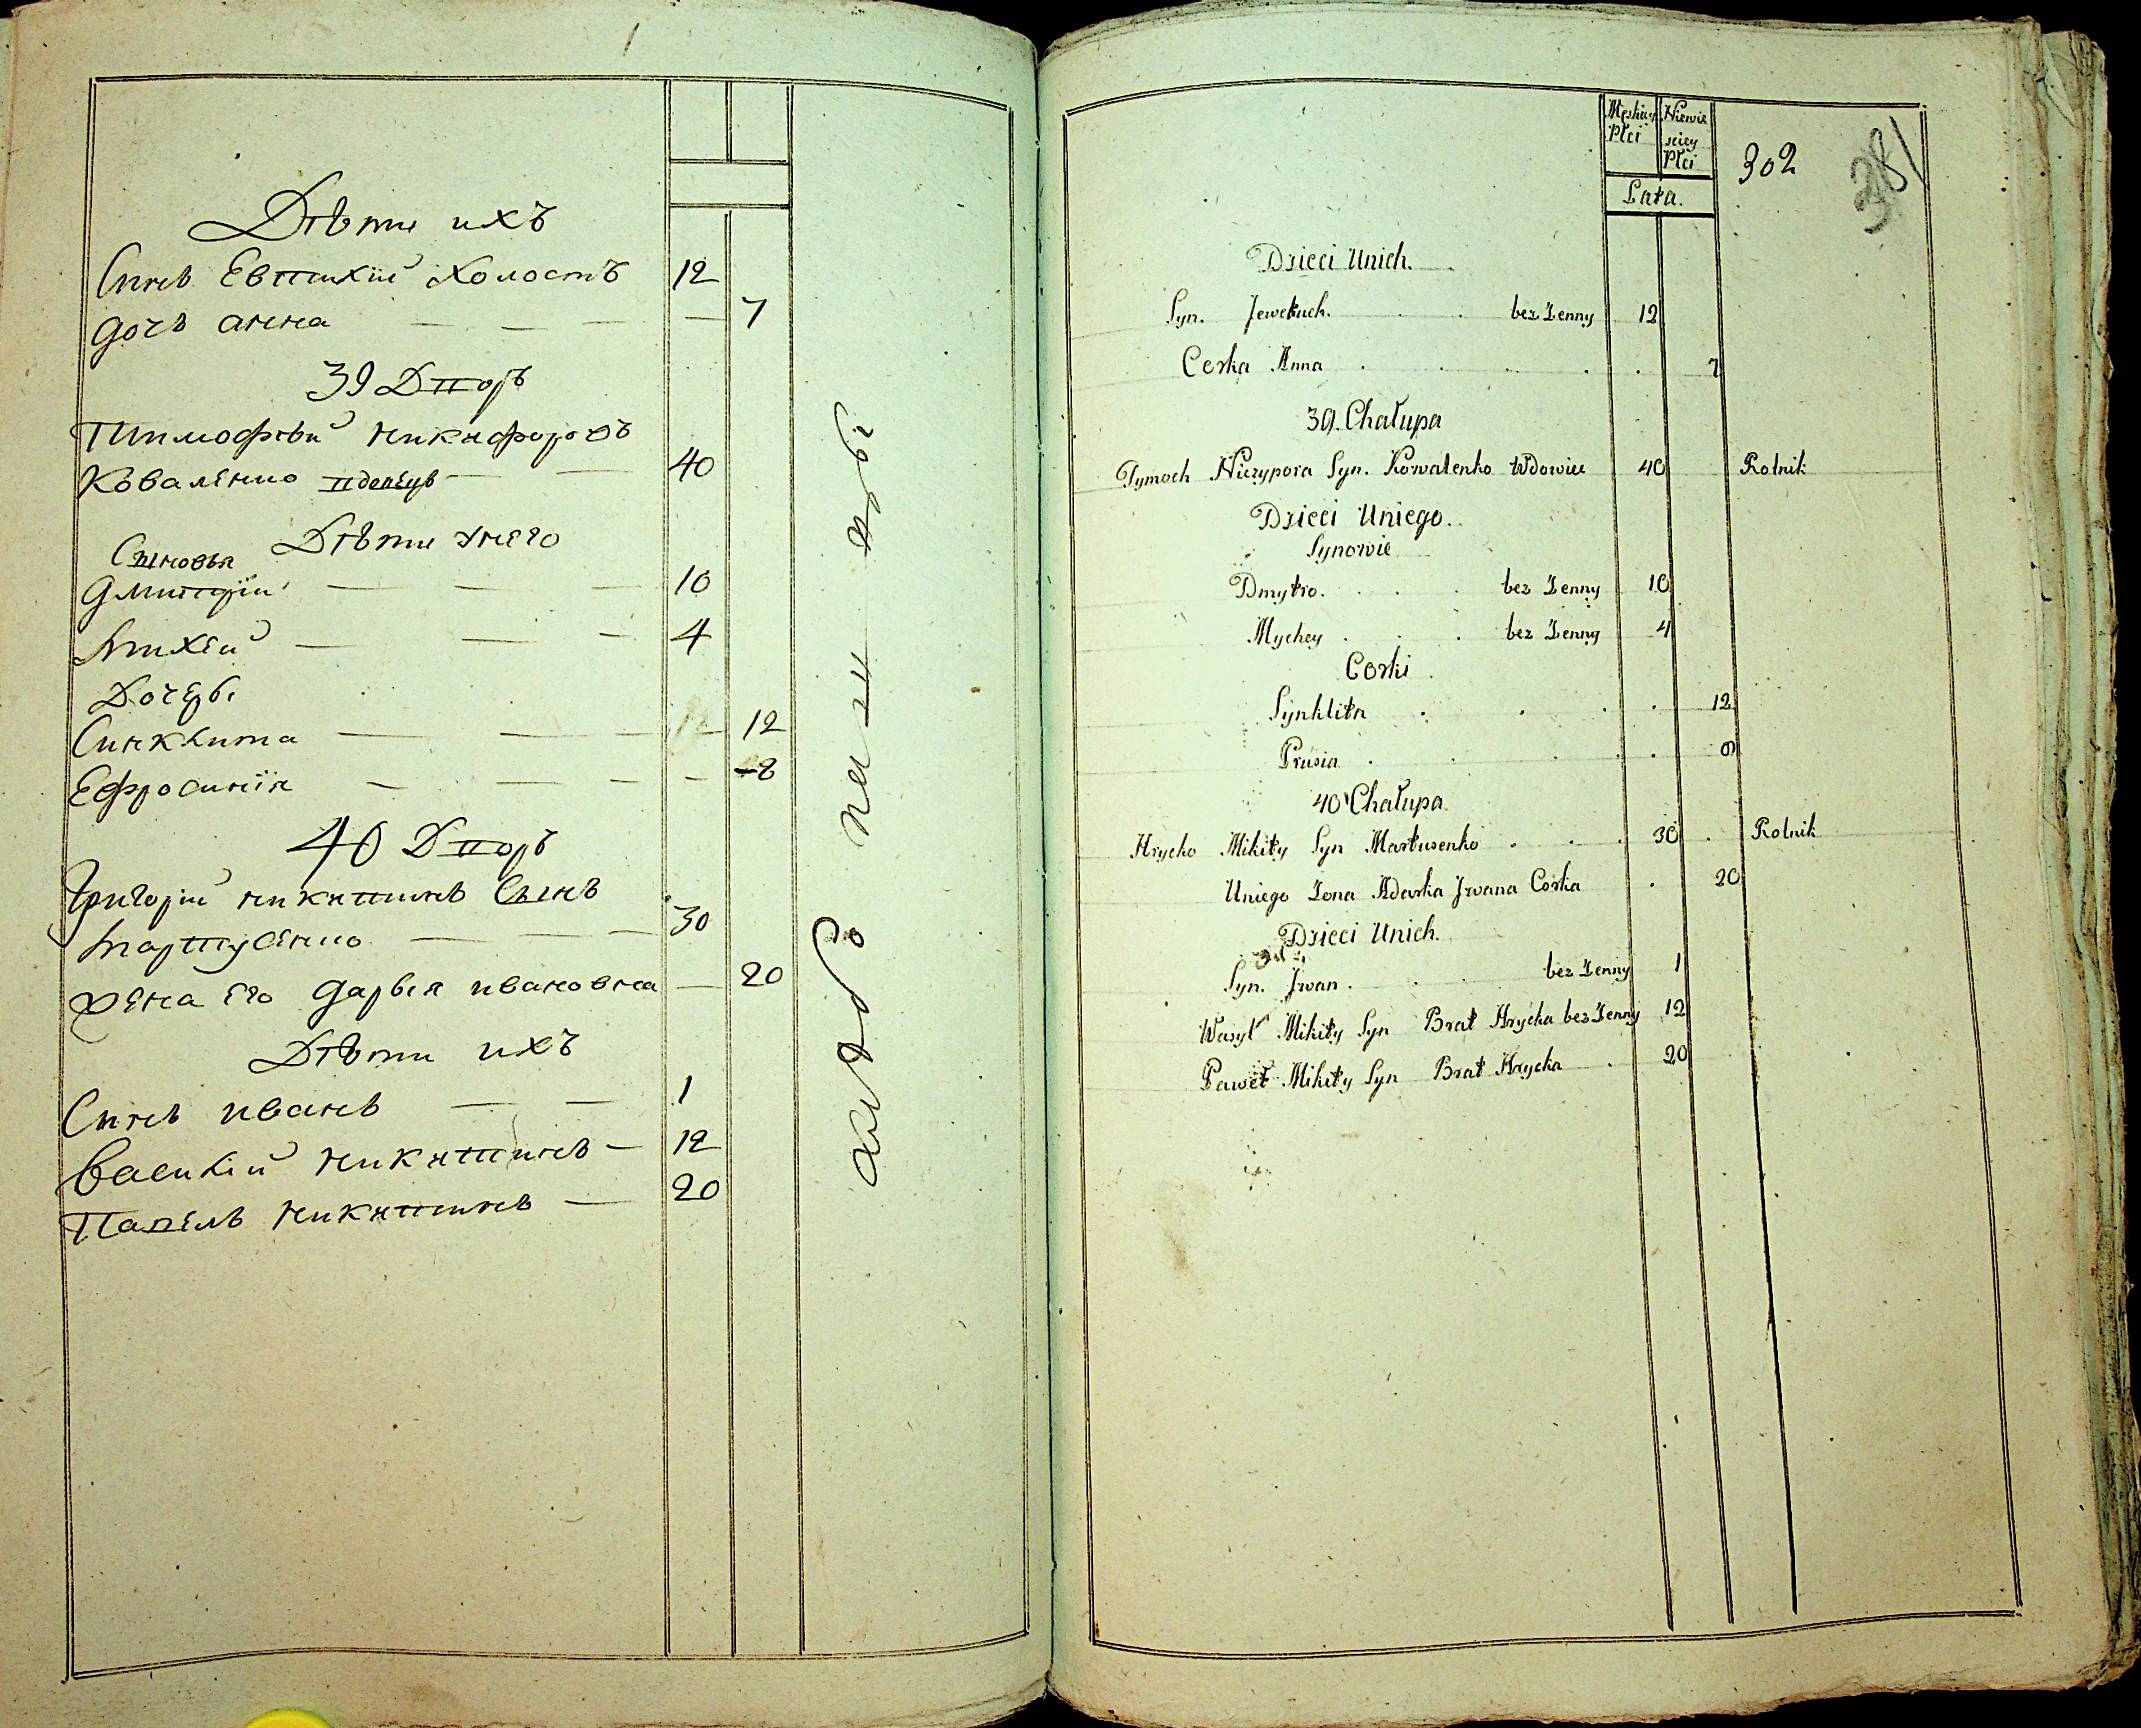 Дѣти ихъ
Сынъ Евтихій холостъ 12
дочь анна — — — — 7
39 Дворъ
Тимофѣй никифоровъ
Коваленко вдовецъ — — 40
Дѣти унего
Сыновья
дмитрій — — — 10
Михей — — — 4
Дочери
Синклита — — — 12
Ефросинія — — — — 8
40 Дворъ
Григорій никитинъ Сынъ
Мартусенко — — — 30
жена его дарья ивановна — 20
Дѣти ихъ
Сынъ иванъ — — 1
Василій никитинъ — 12
Павелъ никитинъ — 20
Męskiey Płci
Niewieściey Płci
Lata.
302
381
Dzieci Unich.
Syn. Jewtuch. bez Zenny 12
Corka Anna 7
39. Chałupa
Tymoch Niczypora Syn. Kowalenko Wdowiec 40 Rolnik
Dzieci Uniego.
Synowie
Dmytro. bez Zenny 10
Mychey bez Zenny 4
Corki
Synklita 12
Prusia 8
40 Chałupa
Hrycko Mikity Syn Martusenko 30 Rolnik
Uniego Zona Adarka Jwana Corka 20
Dzieci Unich.
Syn. Jwan. bez Zenny 1
Wasyl Mikity Syn Brat Hrycka bez Zenny 12
Paweł Mikity Syn Brat Hrycka 20